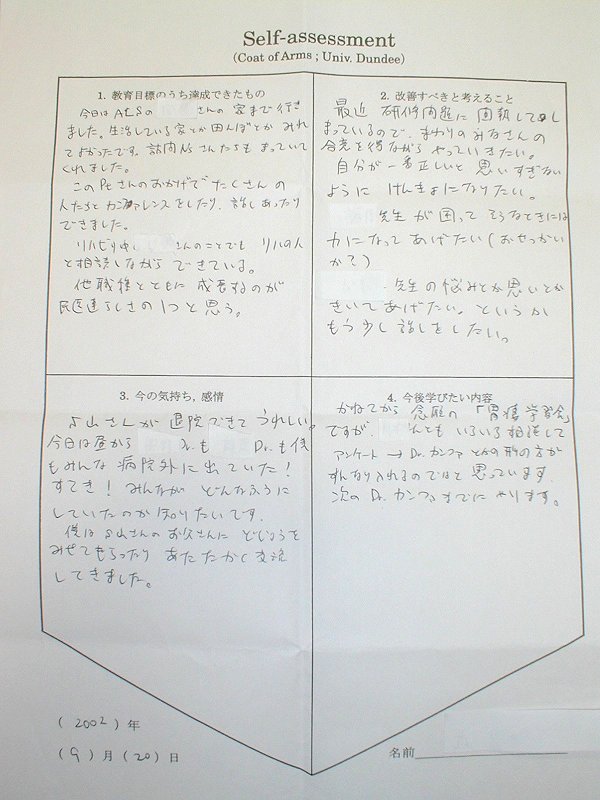 Self-assessment
(Coat of Arms ; Univ. Dundee)
1. 教育目標のうち達成できたもの
今日はALSの さんの家まで行き
ました。生活している家とか田んぼとか みれ
てよかったです。訪問Nsさんたちも まっていて
くれました。
このPtさんのおかげで たくさんの
人たちと カンファレンスをしたり、話しあったり
できました。
リハビリ中し さんのことでも リハの人
と相談しながら できている。
他職種とともに 成長するのが
民医連らしさの1つと思う。
2. 改善すべきと考えること
最近 研修内容に 固執してし
まっているので、まわりのみなさんの
合意を得ながら やっていきたい。
自分が一番正しいと思いすぎない
ように けんきょになりたい。
先生が 困って そうなときには
力になって あげたい(おせっかい
か?)
・先生の悩みとか思いとか
きいてあげたい。というか
もう少し話しをしたい。
3. 今の気持ち, 感情
山さんが 退院できて うれしい。
今日は昼から Dr.も Dr.も僕
もみんな 病院外に出ていた!
すてき! みんなが どんなふうに
していたのか 知りたいです。
僕は 山さんのお父さんに どじょうを
みせてもらったり あたたかく交流
してきました。
4. 今後学びたい内容
かねてから 念願の 「胃瘻学習会」
ですが、 んとも いろいろ相談して
アンケート → Dr.カンファ とかの形の方が
すんなり入れるのではと 思っています.
次の Dr.カンファまでに やります。
(2002) 年
(9) 月 (20) 日
名前